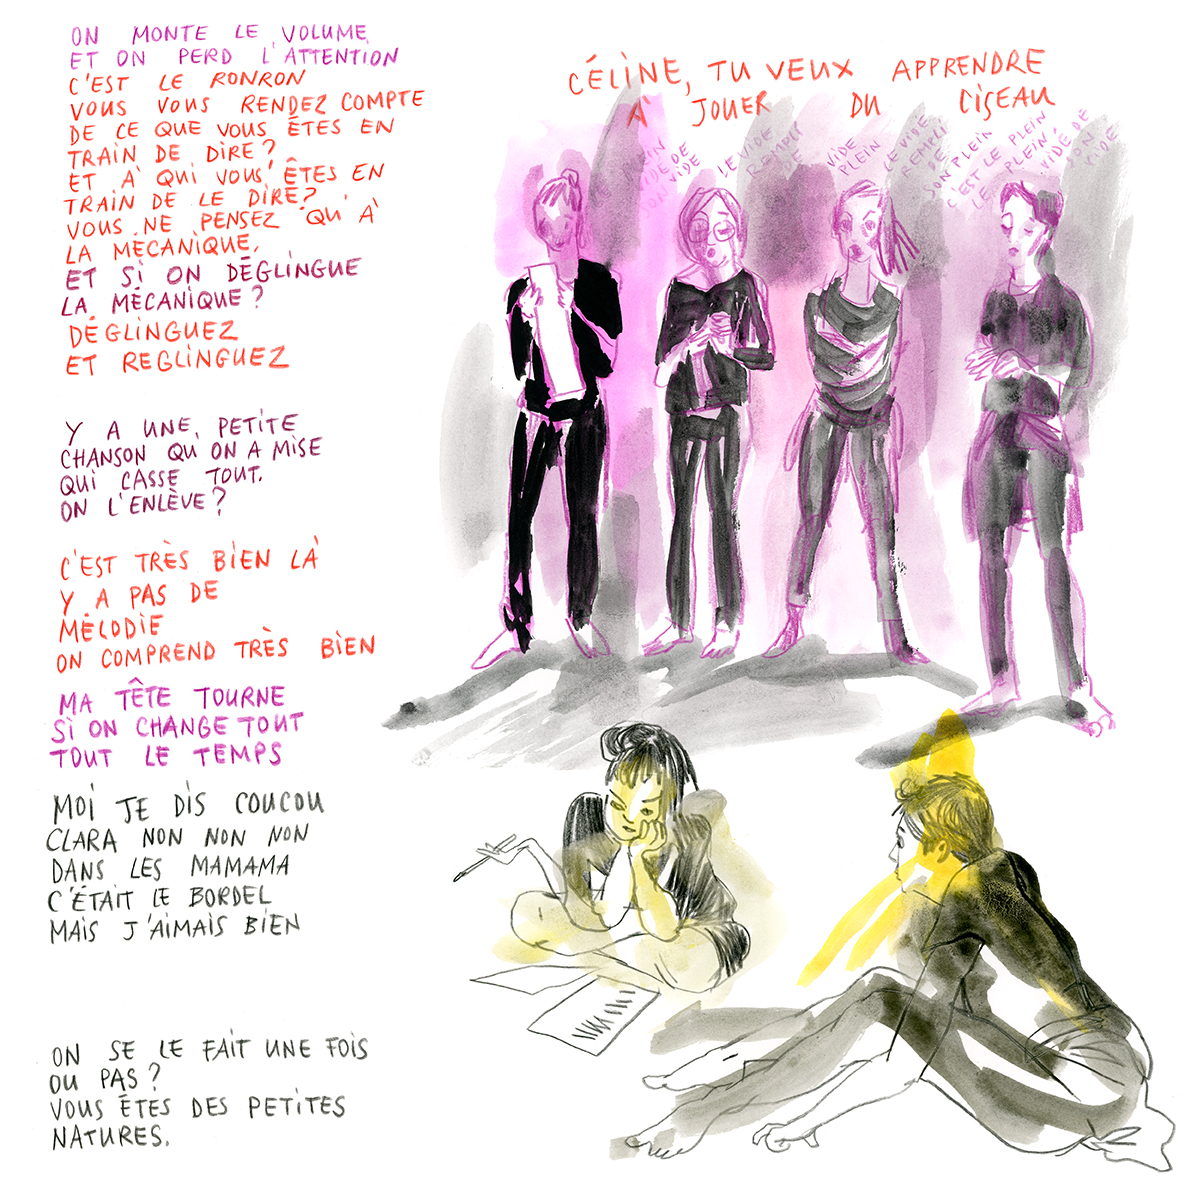 ON MONTE LE VOLUME
ET ON PERD L'ATTENTION
C'EST LE RONRON
VOUS VOUS RENDEZ COMPTE
DE CE QUE VOUS ÊTES EN
TRAIN DE DIRE?
ET À QUI VOUS ÊTES EN
TRAIN DE LE DIRE?
VOUS NE PENSEZ QU'À
LA MÉCANIQUE.
ET SI ON DÉGLINGUE
LA MÉCANIQUE?
DÉGLINGUEZ
ET REGLINGUEZ
Y A UNE PETITE
CHANSON QU ON A MISE
QUI CASSE TOUT.
ON L'ENLÈVE?
C'EST TRÈS BIEN LÀ
Y A PAS DE
MÉLODIE
ON COMPREND TRÈS BIEN
MA TÊTE TOURNE
SI ON CHANGE TOUT
TOUT LE TEMPS
MOI JE DIS COUCOU
CLARA NON NON NON
DANS LES MAMAMA
C'ÉTAIT LE BORDEL
MAIS J'AIMAIS BIEN
ON SE LE FAIT UNE FOIS
OU PAS?
VOUS ÊTES DES PETITES
NATURES.
CÉLINE, TU VEUX APPRENDRE
À JOUER DU CISEAU
VIDE DE
SON VIDE
LE VIDE
REMPLI
DE
VIDE
PLEIN
LE VIDE
REMPLI
DE
SON PLEIN
C'EST LE PLEIN
LE PLEIN
VIDÉ DE
SON
VIDE